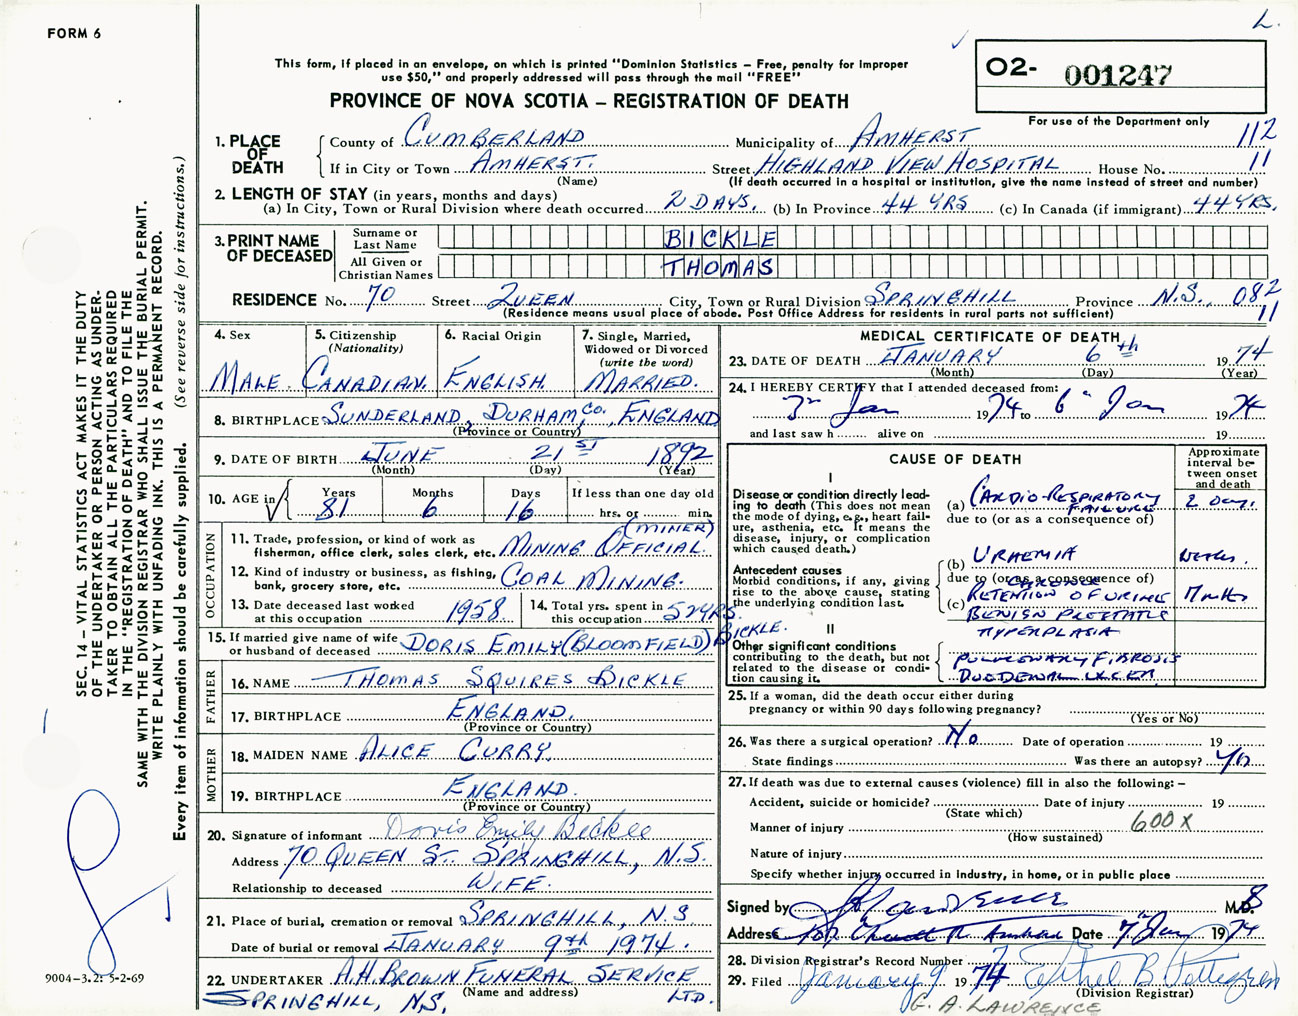 L.
FORM 6
This form, if placed in an envelope, on which is printed "Dominion Statistics – Free, penalty for improper
use $50," and properly addressed will pass through the mail "FREE"
PROVINCE OF NOVA SCOTIA – REGISTRATION OF DEATH
O2- 001247
For use of the Department only
1. PLACE OF DEATH
County of CUMBERLAND Municipality of AMHERST 112
If in City or Town AMHERST. Street HIGHLAND VIEW HOSPITAL House No. 11
(Name) (If death occurred in a hospital or institution, give the name instead of street and number)
2. LENGTH OF STAY (in years, months and days)
(a) In City, Town or Rural Division where death occurred 2 DAYS. (b) In Province 44 YRS (c) In Canada (if immigrant) 44 YRS.
3. PRINT NAME OF DECEASED
Surname or Last Name BICKLE
All Given or Christian Names THOMAS
RESIDENCE No. 70 Street QUEEN City, Town or Rural Division SPRINGHILL Province N.S. 082
(Residence means usual place of abode. Post Office Address for residents in rural parts not sufficient) 11
4. Sex MALE
5. Citizenship (Nationality) CANADIAN
6. Racial Origin ENGLISH
7. Single, Married, Widowed or Divorced (write the word) MARRIED.
8. BIRTHPLACE SUNDERLAND, DURHAM CO., ENGLAND
(Province or Country)
9. DATE OF BIRTH JUNE 21ST 1892
(Month) (Day) (Year)
10. AGE in Years 81 Months 6 Days 16 If less than one day old hrs. or min.
OCCUPATION
11. Trade, profession, or kind of work as fisherman, office clerk, sales clerk, etc. MINING OFFICIAL. (MINER)
12. Kind of industry or business, as fishing, bank, grocery store, etc. COAL MINING.
13. Date deceased last worked at this occupation 1958
14. Total yrs. spent in this occupation 52 YRS.
15. If married give name of wife or husband of deceased DORIS EMILY (BLOOMFIELD) BICKLE.
FATHER
16. NAME THOMAS SQUIRES BICKLE
17. BIRTHPLACE ENGLAND.
(Province or Country)
MOTHER
18. MAIDEN NAME ALICE CURRY.
19. BIRTHPLACE ENGLAND.
(Province or Country)
20. Signature of informant Doris Emily Bickle
Address 70 QUEEN ST. SPRINGHILL, N.S.
Relationship to deceased WIFE.
21. Place of burial, cremation or removal SPRINGHILL, N.S
Date of burial or removal JANUARY 9th 1974.
22. UNDERTAKER A.H. BROWN FUNERAL SERVICE LTD.
(Name and address)
SPRINGHILL, N.S.
MEDICAL CERTIFICATE OF DEATH
23. DATE OF DEATH JANUARY 6th 1974
(Month) (Day) (Year)
24. I HEREBY CERTIFY that I attended deceased from:
3rd Jan 1974 to 6th Jan 1974
and last saw h alive on 19
CAUSE OF DEATH
Approximate interval between onset and death
I
Disease or condition directly leading to death (This does not mean the mode of dying, e.g., heart failure, asthenia, etc. It means the disease, injury, or complication which caused death.)
(a) CARDIO-RESPIRATORY FAILURE 2 Days.
due to (or as a consequence of)
Antecedent causes
Morbid conditions, if any, giving rise to the above cause, stating the underlying condition last.
(b) URAEMIA Weeks.
due to (or as a consequence of)
(c) CHRONIC RETENTION OF URINE
BENIGN PROSTATIC
HYPERPLASIA
II
Other significant conditions
contributing to the death, but not related to the disease or condition causing it.
PULMONARY FIBROSIS
DUODENAL ULCER
25. If a woman, did the death occur either during pregnancy or within 90 days following pregnancy?
(Yes or No)
26. Was there a surgical operation? No Date of operation 19
State findings Was there an autopsy?
27. If death was due to external causes (violence) fill in also the following: –
Accident, suicide or homicide? Date of injury 19
(State which)
Manner of injury 600X
(How sustained)
Nature of injury
Specify whether injury occurred in industry, in home, or in public place
Signed by M.D.
Address Date 7th Jan 1974
28. Division Registrar's Record Number 7
29. Filed January 9 1974 Ethel B. Pettigrew
(Division Registrar)
G. A. LAWRENCE
SEC. 14 – VITAL STATISTICS ACT MAKES IT THE DUTY
OF THE UNDERTAKER OR PERSON ACTING AS UNDER-
TAKER TO OBTAIN ALL THE PARTICULARS REQUIRED
IN THE "REGISTRATION OF DEATH" AND TO FILE THE
SAME WITH THE DIVISION REGISTRAR WHO SHALL ISSUE THE BURIAL PERMIT.
WRITE PLAINLY WITH UNFADING INK. THIS IS A PERMANENT RECORD.
Every item of information should be carefully supplied. (See reverse side for instructions.)
9004-3.2: 5-2-69